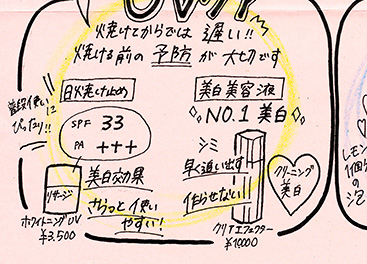 UVケア!!
焼けてからでは 遅い!!
焼ける前の 予防 が 大切です
普段使いに
ぴったり!!
日焼け止め
SPF 33
PA +++
リサージ
ホワイトニングUV
¥3,500
美白効果
さらっと使い
やすい!
美白美容液
NO.1 美白
シミ
早く追い出す
作らせない!
クリーニング
美白
クリアエフェクター
レモン
1個
の泡